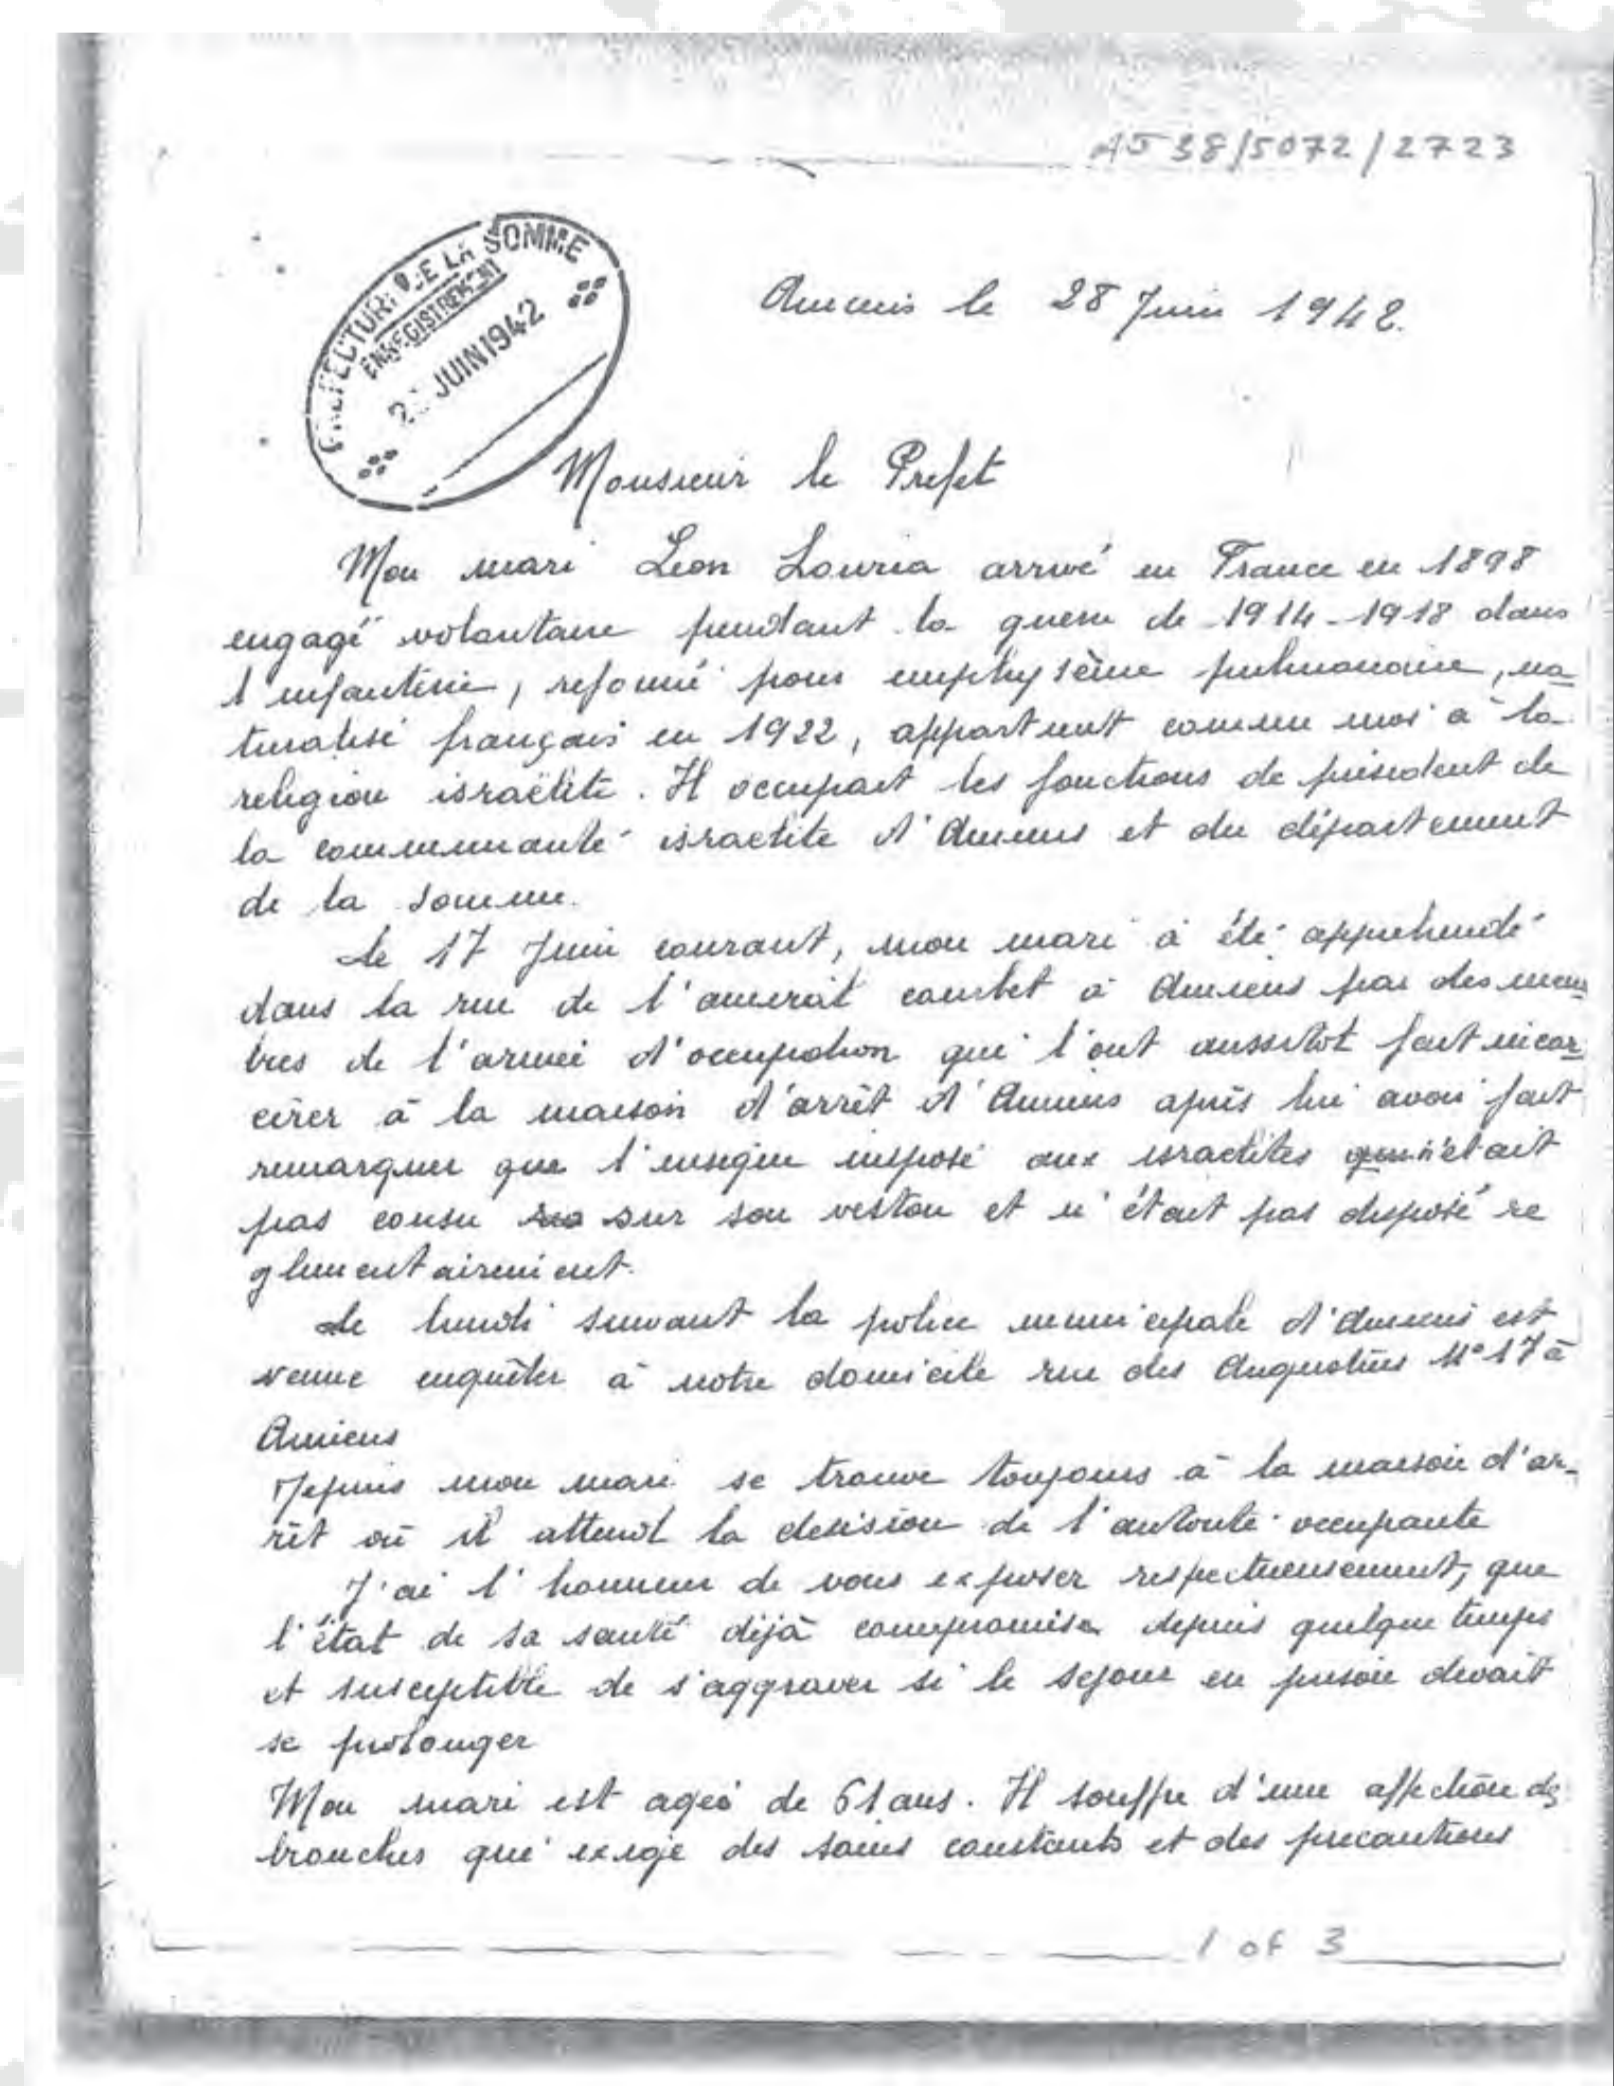 AJ38/5072/2723
PREFECTURE DE LA SOMME
ENREGISTREMENT
2 JUIN 1942
Amiens le 28 Juin 1942.
Monsieur le Prefet
Mon mari Leon Louria arrivé en France en 1898
engagé volontaire pendant la guerre de 1914-1918 dans
l'infanterie, reformé pour emphysème pulmonaire, na
turalisé français en 1922, appartient comme moi à la
religion israëlite. Il occupait les fonctions de président de
la communauté israelite d'Amiens et du département
de la Somme.
Le 17 Juin courant, mon mari à été apprehendé
dans la rue de l'amiral courbet à Amiens par des mem
bres de l'armée d'occupation qui l'ont aussitôt fait incar
cérer à la maison d'arrêt d'Amiens après lui avoir fait
remarquer que l'insigne imposé aux israelites n'était
pas cousu sur son veston et n'était pas disposé re
glementairement.
Le lundi suivant la police municipale d'Amiens est
venue enquêter à notre domicile rue des Augustins N°17 à
Amiens
Depuis mon mari se trouve toujours à la maison d'ar-
rêt où il attend la decision de l'autorité occupante
J'ai l'honneur de vous exposer respectueusement, que
l'état de sa santé déjà compromise depuis quelque temps
et susceptible de s'aggraver si le sejour en prison devait
se prolonger
Mon mari est ageé de 61 ans. Il souffre d'une affection des
bronches qui exige des soins constants et des precautions
1 of 3